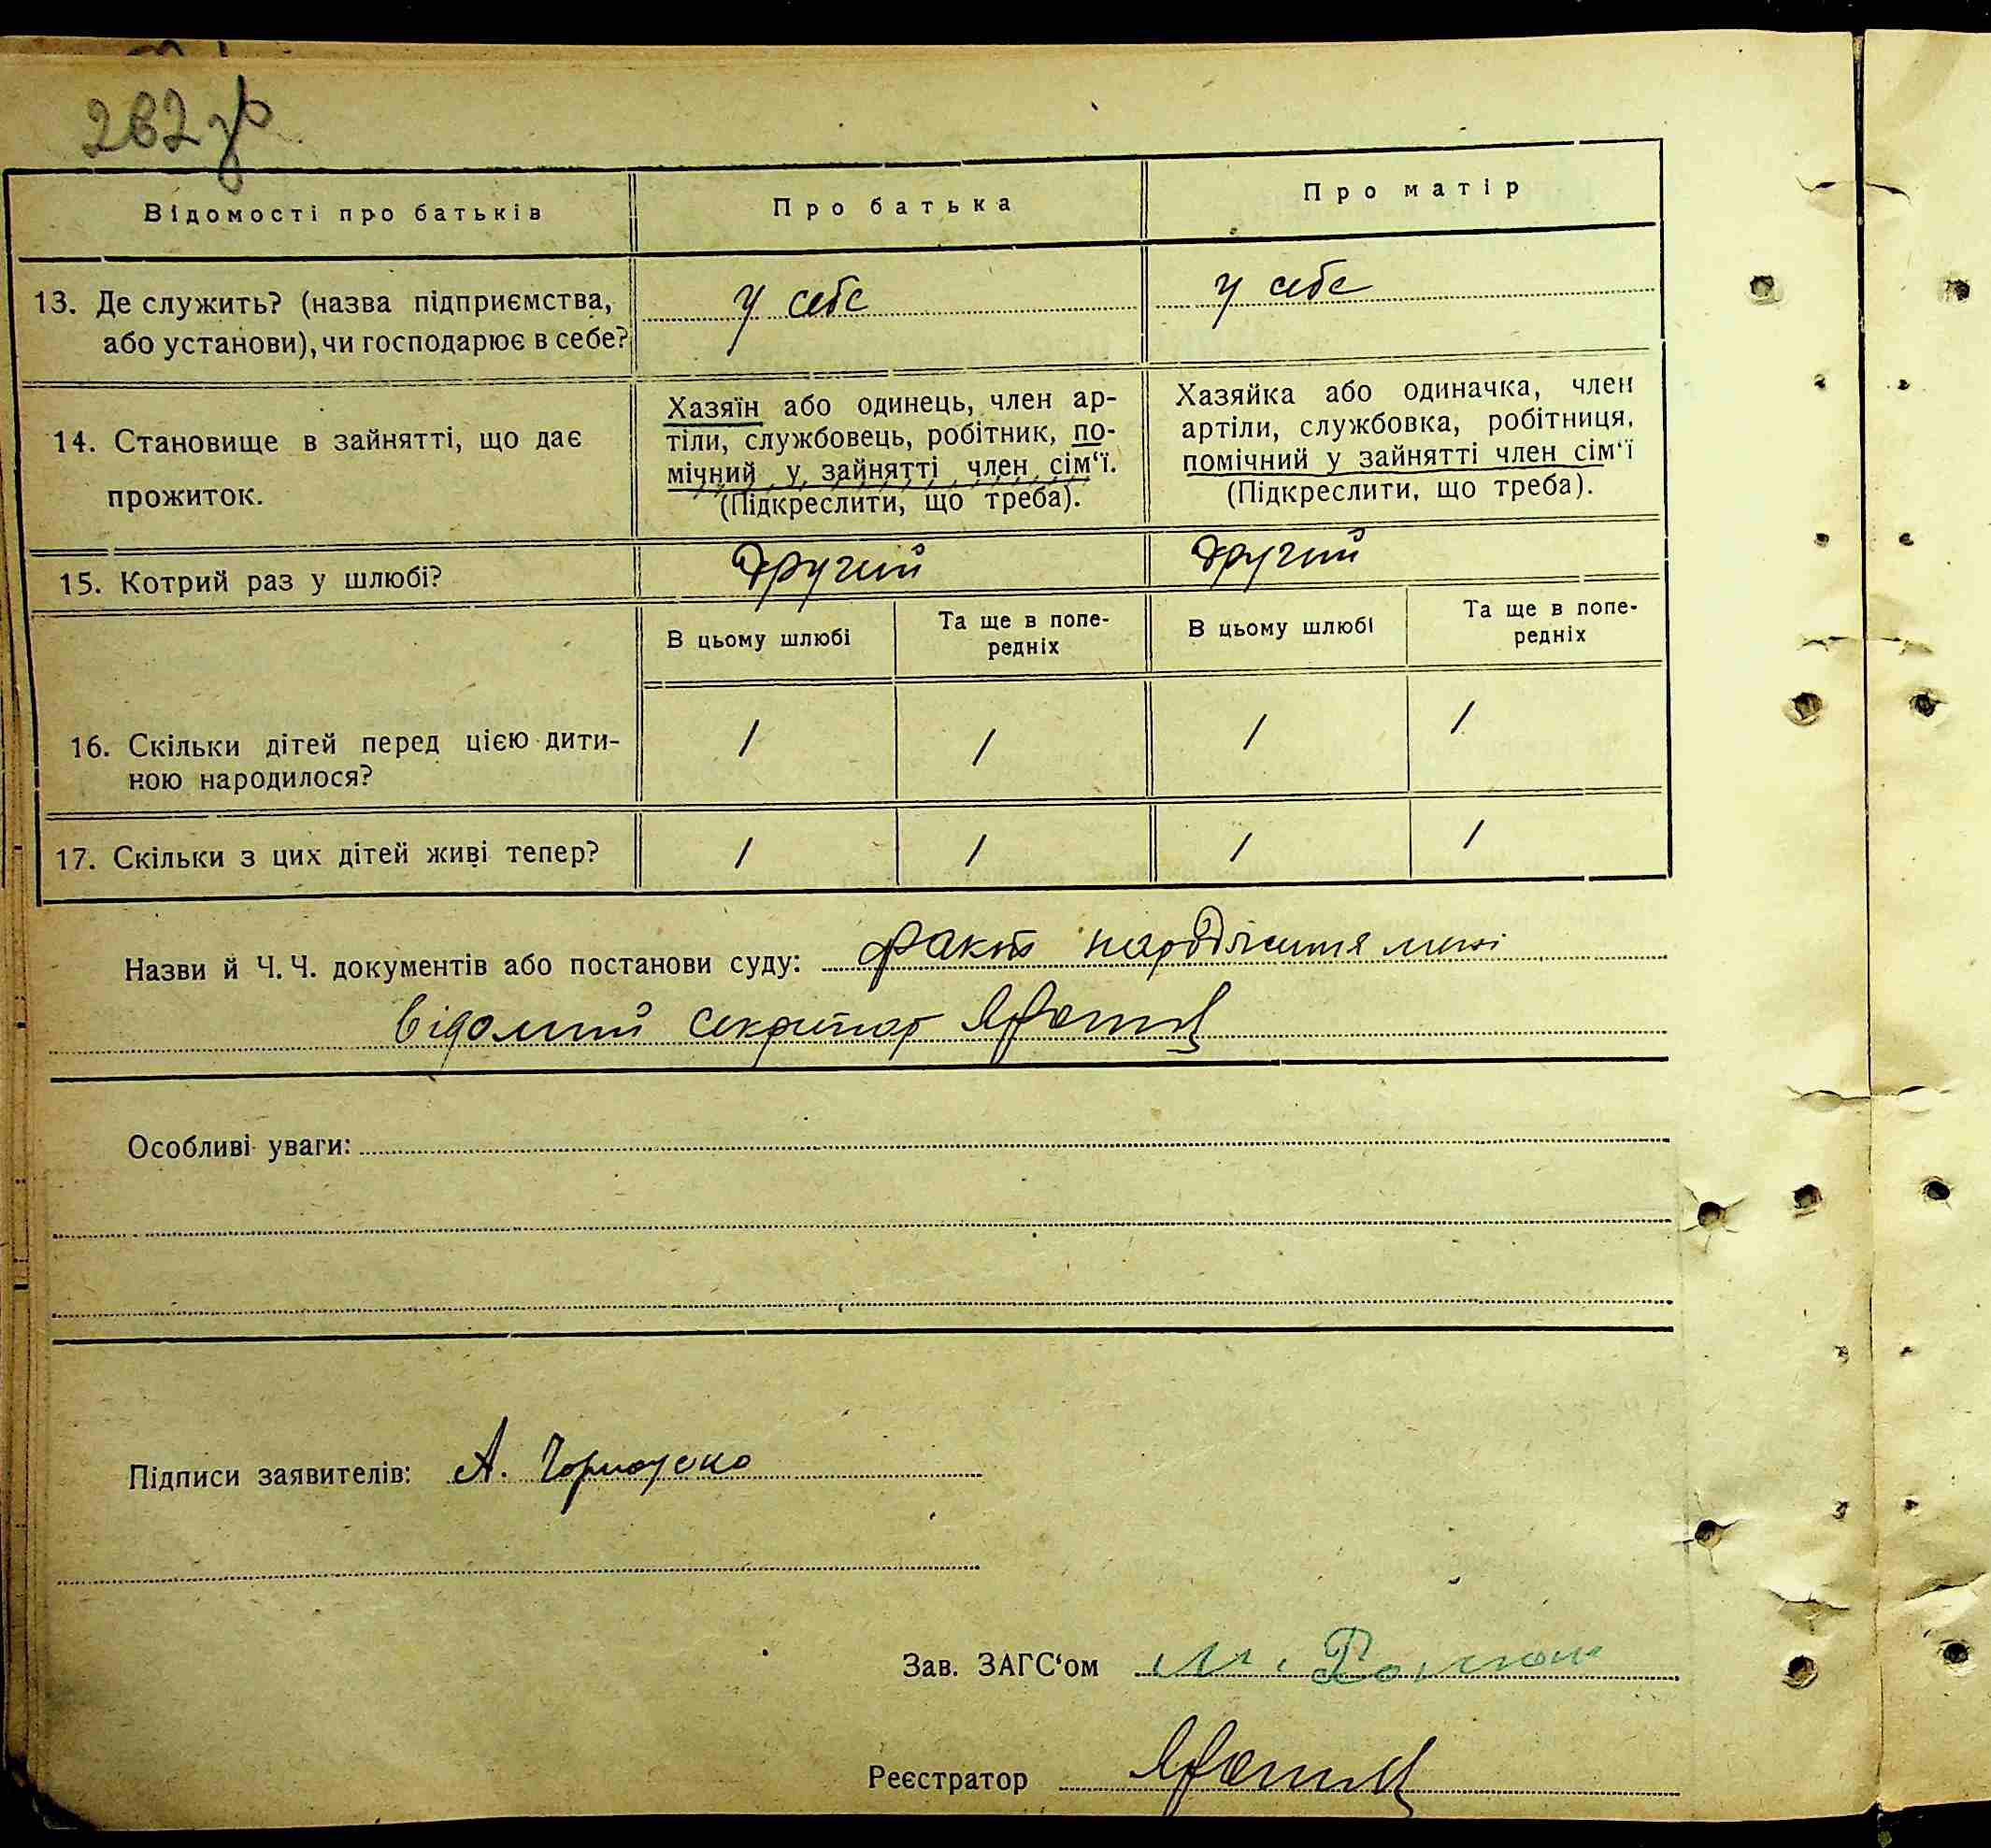 262 зр
Відомості про батьків
Про батька
Про матір
13. Де служить? (назва підприємства,
або установи), чи господарює в себе?
У себе
У себе
14. Становище в зайнятті, що дає
прожиток.
Хазяїн або одинець, член ар-
тіли, службовець, робітник, по-
мічний у зайнятті член сім‘ї.
(Підкреслити, що треба).
Хазяйка або одиначка, член
артіли, службовка, робітниця,
помічний у зайнятті член сім‘ї
(Підкреслити, що треба).
15. Котрий раз у шлюбі?
Другий
Другий
В цьому шлюбі
Та ще в попе-
редніх
В цьому шлюбі
Та ще в попе-
редніх
16. Скільки дітей перед цією дити-
ною народилося?
/ / / /
17. Скільки з цих дітей живі тепер?
/ / / /
Назви й Ч. Ч. документів або постанови суду: Факт народження мені
відомий секретар
Особливі уваги:
Підписи заявителів: А.
Зав. ЗАГС‘ом М.
Реєстратор